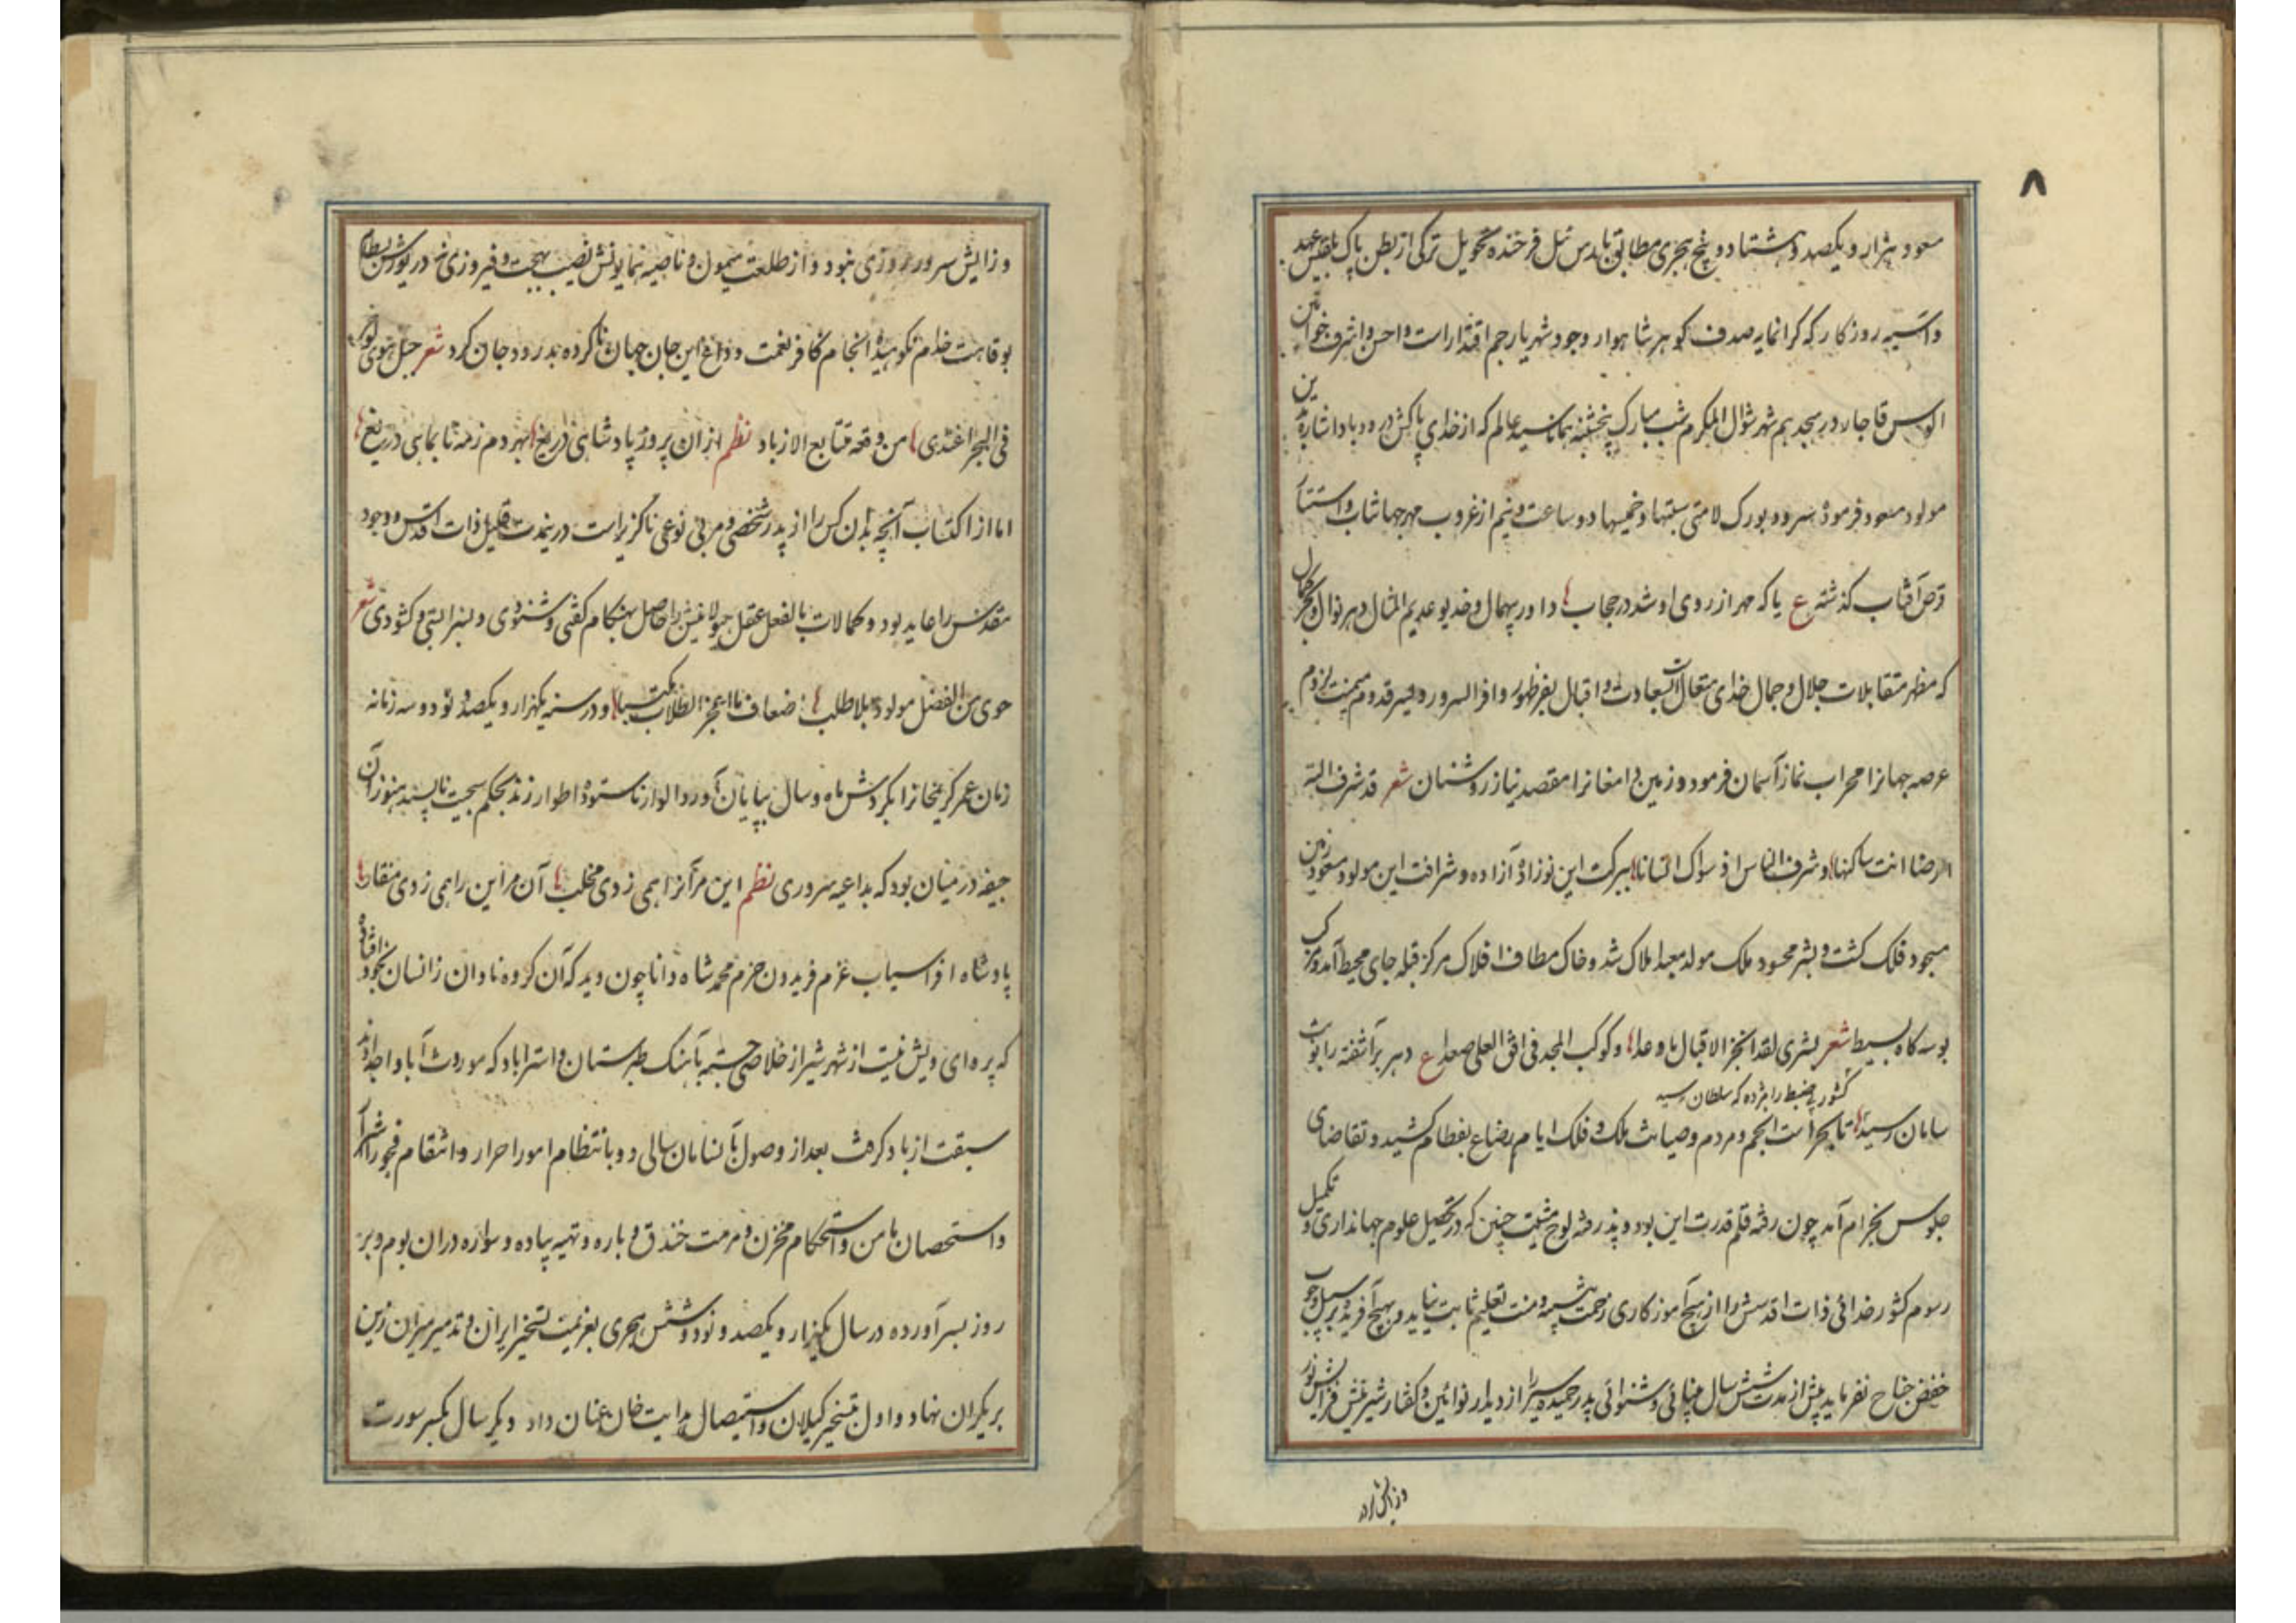 ۸
مسعود هزار و یکصد و هشتاد و پنج هجری مطابق بارس ئیل فرخنده تحویل ترکی از بطن پاک بلقیس عهد
و آسیه روزگار که گرانمایه صدف گوهر شاهوار وجود شهریار جم اقتدار است و احسن و اشرف خواتین
قاجار در هجدهم شهر شوال المکرم شب مبارک پنجشنبه همانا سید عالم که از خدای پاکش درود باد اشاره بدین
مولود مسعود فرموده بورک لامتی سبتها و خمیسها دو ساعت و نیم از غروب مهر جهانتاب و استتار
قرص آفتاب گذشته ع یا که مهر از روی او شد در حجاب داور بیهمال و خدیو عدیم المثال
که مظهر متقابلات جلال و جمال خدای متعال است بسعادت و اقبال بفر ظهور وافر السرور و فیض قدوم میمنت لزوم
عرصه جهانرا محراب نماز آسمان فرمود و زمین دامغانرا مقصد نیاز روشنان شعر قد شرف الله
ارضا انت ساکنها و شرف الناس اذ سواک انسانا ببرکت این نوزاده آزاده و شرافت این مولود مسعود زمین
مسجود فلک گشت و بشر محسود ملک مولد معبد املاک شد و خاک مطاف افلاک مرکز قبله جای محیط آمد و مرکب
بوسه گاه بسیط شعر بشری لقد انجز الاقبال ما وعدا و کوکب المجد فی افق العلی صعدا ع دهر برآشفته را نوبت
کشور بی ضبط را مژده که سلطان رسید
سامان رسید تا بحراست انجم و مردم و صیانت ملک و فلک ایام رضاع بفطام کشید و تقاضای
جلوس بخرام آمد چون رقم قلم قدرت این بود و پذرفته لوح مشیت چنین که در تحصیل علوم جهانداری و تکمیل
رسوم کشور خدائی ذات اقدسش را از هیچ آموزگاری زحمت تعلیم ثابت نیاید و بهیچ آفریده بر سبیل وجوب
خفض جناح نفرماید پیش از مدت شش سال بینائی و شنوائی پدر حمیده سیر را از دیدار نوآئین و گفتار شیرینش
و زایش سرور روزی نبود و از طلعت میمون و ناصیه همایونش نصیب بهجت و فیروزی نه در یورش بسطام
بوقاحت خدام نکوهیده انجام کافر نعمت وداع این جان جهان ناکرده بدرود جان کرد شعر جبل هوی لو
فی البحر اغتدی من وقعه متتابع الازباد نظم از آن پرور پادشاهی دریغ
اما از اکتساب آنچه بدان کس را از پدر شخصی و مربی نوعی ناگزیر است در نیمدت قلیل ذات اقدس و وجود
مقدسش را عاید بود و کمالات بالفعل عقل هیولانیش را حاصل بهنگام گفتی و شنودی و بسزا بستی و گشودی شعر
حوی من الفضل مولود بلا طلب اضعاف ما اعجز الطلاب مکتسبا و در سنه یکهزار و یکصد و نود و سه زمانه
زمان عمر کریمخانرا بگردش ماه و سال بپایان آورد الوار ناستوده اطوار زند بحکم سجیت ناپسند هنوز آن
جیفه در میان بود که بداعیه سروری نظم این مر آنرا همی زدی مخلب آن مر این را همی زدی منقار
پادشاه افراسیاب عزم فریدون حزم محمد شاه دانا چون دید که آن گروه نادان زانسان بخود
که پروای ویش نیست از شهر شیراز خلاصی جسته بآهنگ طبرستان و استراباد که موروث آبا و اجدادند
سبقت از باد گرفت بعد از وصول بآنسامان سالی دو بانتظام امور احرار و انتقام فجور اشرار
و استحصان مامن و استحکام مخزن و مرمت خندق و باره و تهیه پیاده و سواره در آن بوم و بر
روز بسر آورده در سال یکهزار و یکصد و نود و شش هجری بعزیمت تسخیر ایران و تدمیر میران زین
بر یکران نهاد و اول بتسخیر گیلان و استیصال هدایت خان عنان داد و دیگر سال یکسر سورت